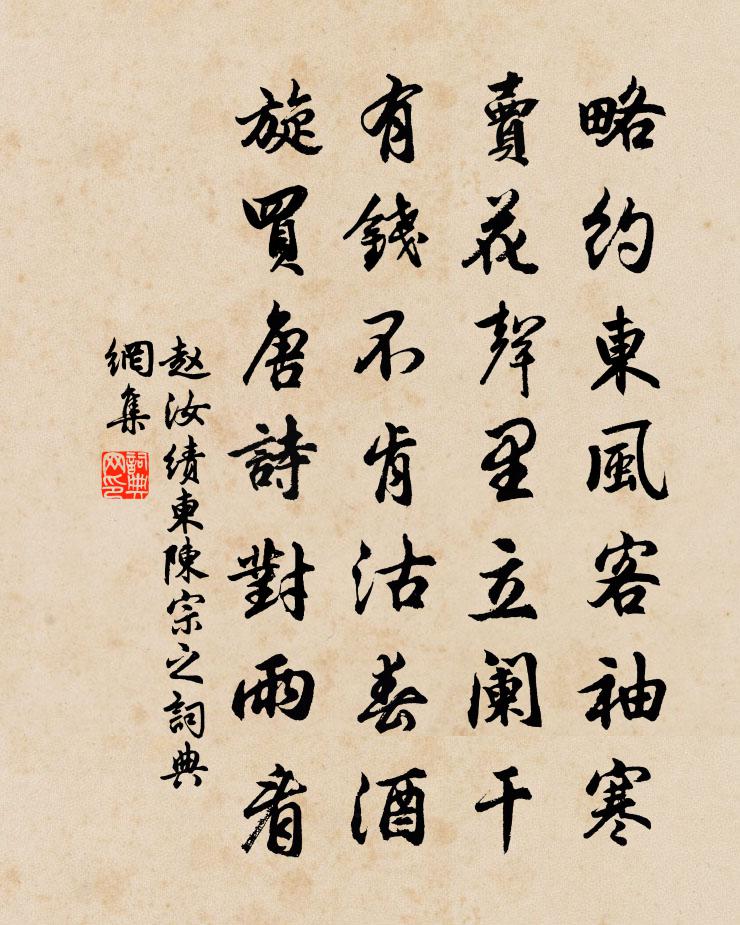 略約東風客袖寒
賣花聲里立闌干
有錢不肯沽春酒
旋買唐詩對雨看
赵汝绩東陳宗之詞典
網集
詞典
网印